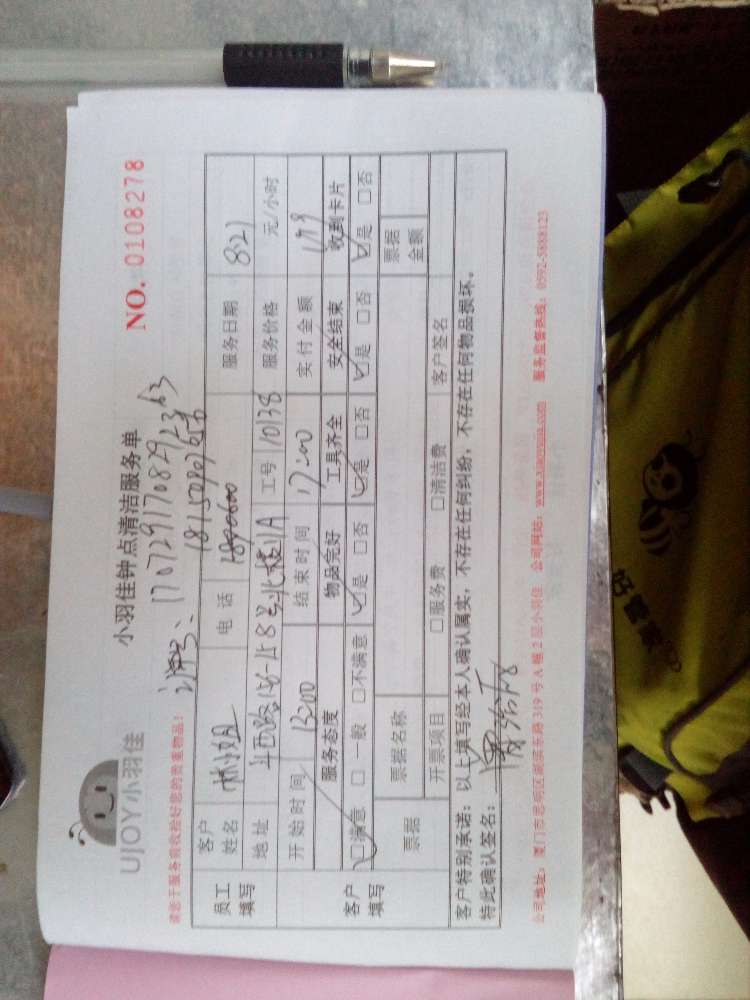 UJOY小羽佳
小羽佳钟点清洁服务单
NO. 0108278
请您于服务前收捡好您的贵重物品!
员工填写
客户姓名 林小姐 电话 服务日期 8.21
地址 工号 10138 服务价格 元/小时
客户填写
开始时间 13:00 结束时间 17:00 实付金额
服务态度 物品完好 工具齐全 安全结束 收到卡片
☑满意 □一般 □不满意 ☑是 □否 ☑是 □否 ☑是 □否 ☑是 □否
票据 票据名称 票据金额
开票项目 □服务费 □清洁费 客户签名
客户特别承诺：以上填写经本人确认属实，不存在任何纠纷，不存在任何物品损坏。
特此确认签名：
公司地址：厦门市思明区湖滨东路319号A幢2层小羽佳 公司网站：www.xiaoyujia.com 服务监督热线：0592-5888123
好管家